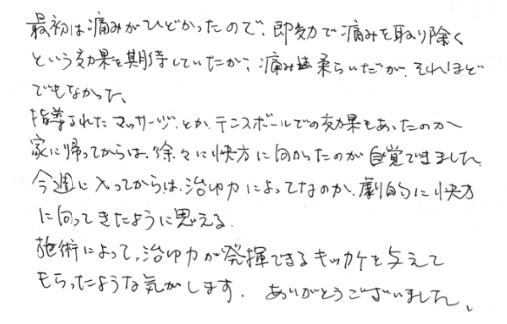 最初は痛みがひどかったので、即効で痛みを取り除く
という効果を期待していたが、痛みは柔らいだが、それほど
でもなかった。
指導されたマッサージとか、テニスボールでの効果もあったのか
家に帰ってからは、徐々に快方に向かったのが自覚できました。
今週に入ってからは、治ゆ力によってなのか、劇的に快方
に向ってきたように思える。
施術によって、治ゆ力が発揮できるキッカケを与えて
もらったような気がします. ありがとうございました。